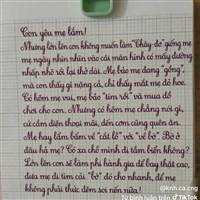 Con yêu mẹ lắm!
Nhưng lớn lên con không muốn làm "Cháy-đơ" giống mẹ
mẹ ngày nhìn nhìn vào cái màn hình có mấy đường
nhấp nhô rồi lại thở dài. Mẹ bảo mẹ đang "gồng",
mà con thấy gì nặng cả, chỉ thấy mắt mẹ đỏ hoe.
Có hôm mẹ vui, mẹ bảo "tím rồi" và mua đồ
chơi cho con. Nhưng có hôm mẹ chẳng nói gì,
cứ cầm điện thoại mãi, đến cơm cũng quên ăn.
Mẹ hay lẩm bẩm về "cắt lỗ" với "về bờ". Bờ ở
đâu hả mẹ? Có xa chỗ mình đi tắm biển không?
Lớn lên con sẽ làm phi hành gia để bay thật cao,
đưa mẹ đi tìm cái "bờ" đó cho nhanh, để mẹ
không phải thức đêm soi nến nữa!
@knh.ca.cng
Từ bình luận trên TikTok